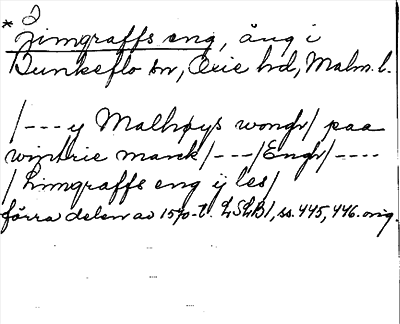 * Limgraffs eng, äng i
Bunkeflo sn, Oxie hd, Malm. l.
/--- y Malhøys wongr/ paa
wintrie marck/---/Engr/----
/Limgraffs eng ÿ les/
förra delen av 1570-t. LSLB1, ss. 445, 446. orig.